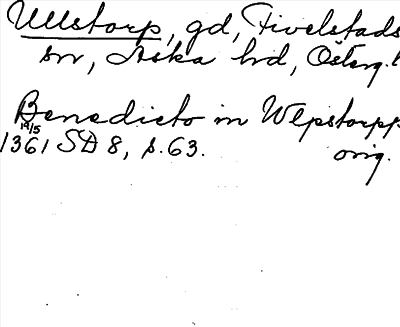 Ullstorp, gd, Fivelstads
sn, Aska hd, Österg.l
Benedicto in Wlpstorpp
19/5
1361 SD 8, s.63. orig.